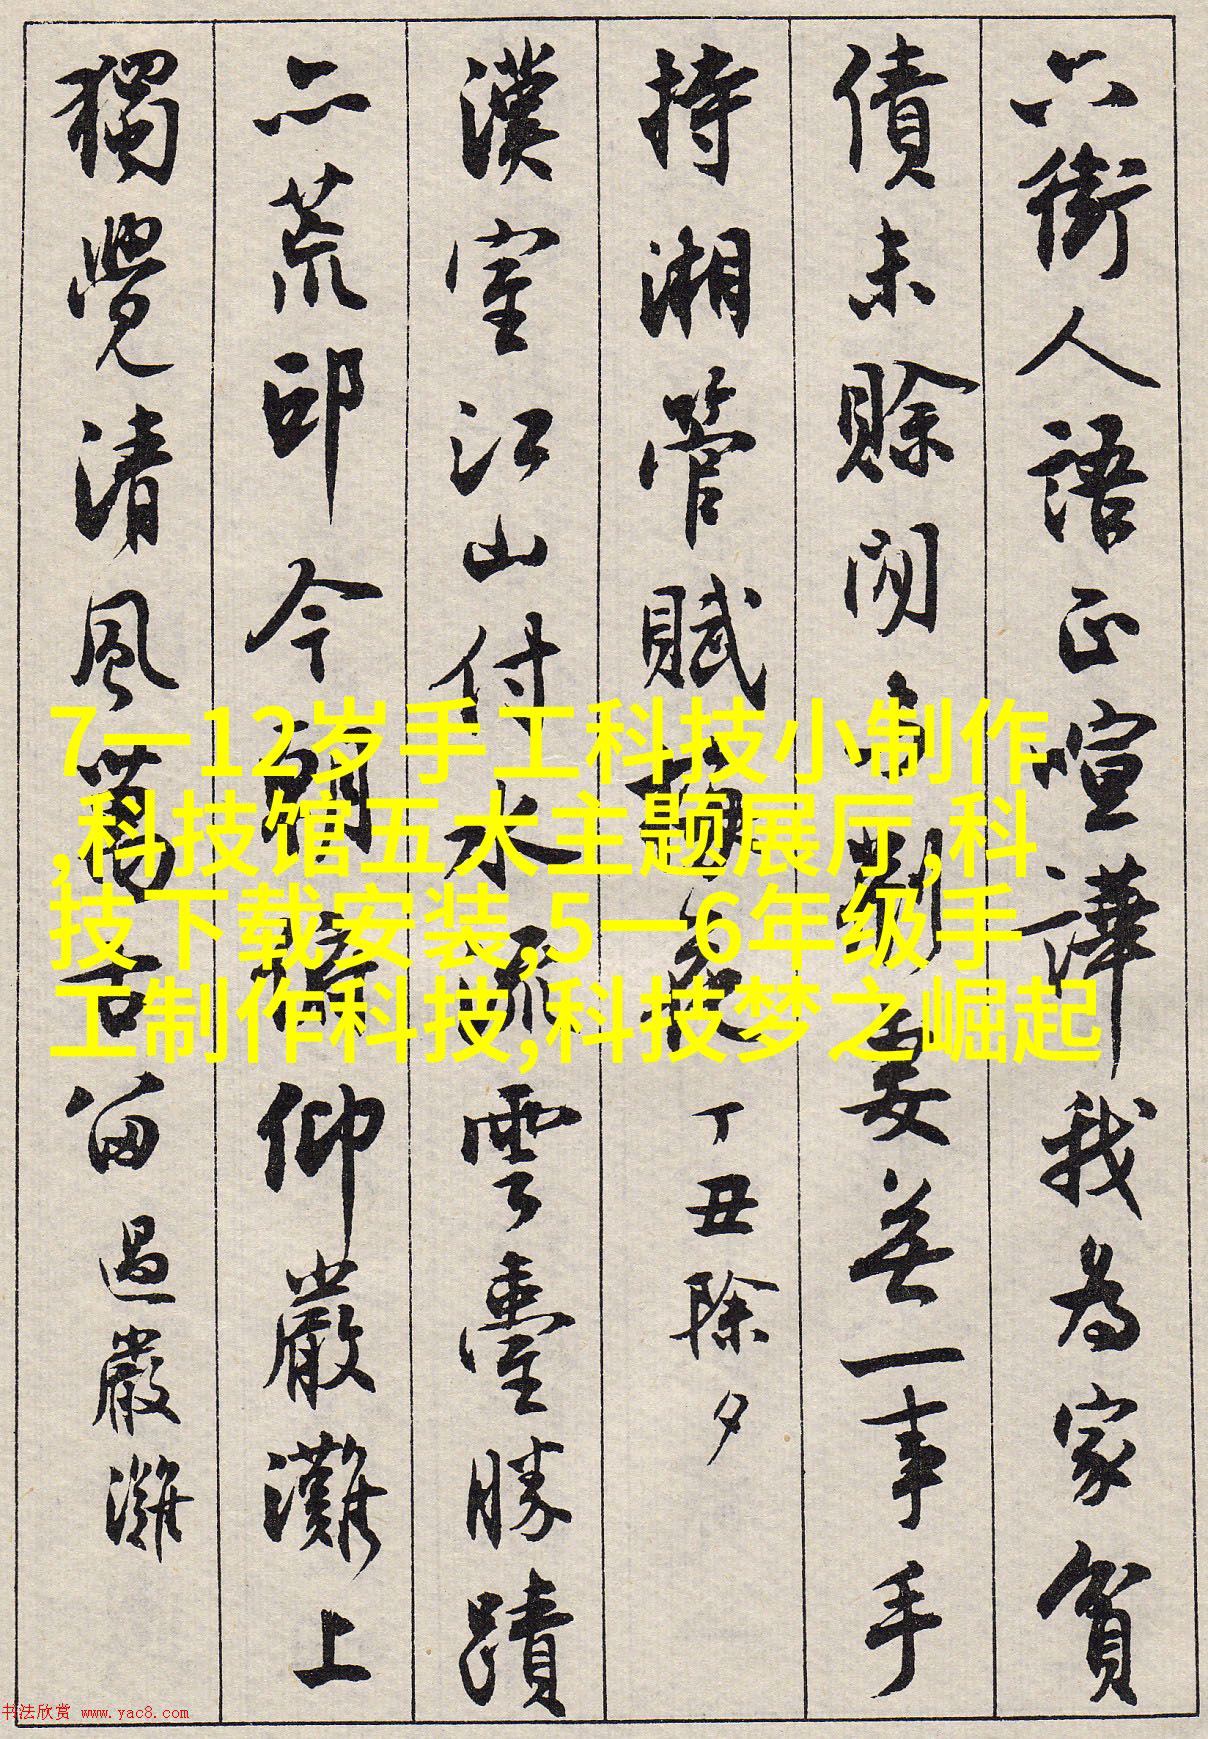 六街人語正喧譁我為家貧
債未賒閒劉妻無一事手
持湘管賦梅花 丁丑除夕
漢室江山付水流雲臺勝蹟
亦荒邱今朝瞻仰嚴灘上
獨覺清風萬古留 過嚴灘
7一12岁手工科技小制作
,科技馆五水主题展厅,科
技下载安装,5一6年级手
工制作科技,科技梦之崛起
书法欣赏 www.yac8.com